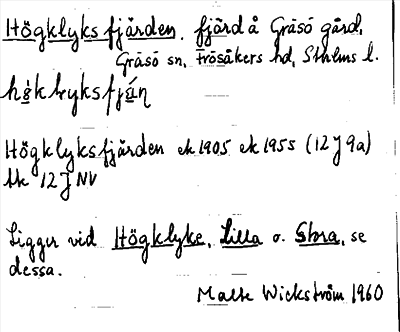 Högklyksfjärden, fjärd å Gräsö gård,
Gräsö sn, Frösåkers hd, Sthlms l.
Högklyksfjärden ek 1905 ek 1955 (12 J 9a)
12 J NV
Ligger vid Högklyke, Lilla o. Stora, se
dessa.
Malte Wickström 1960